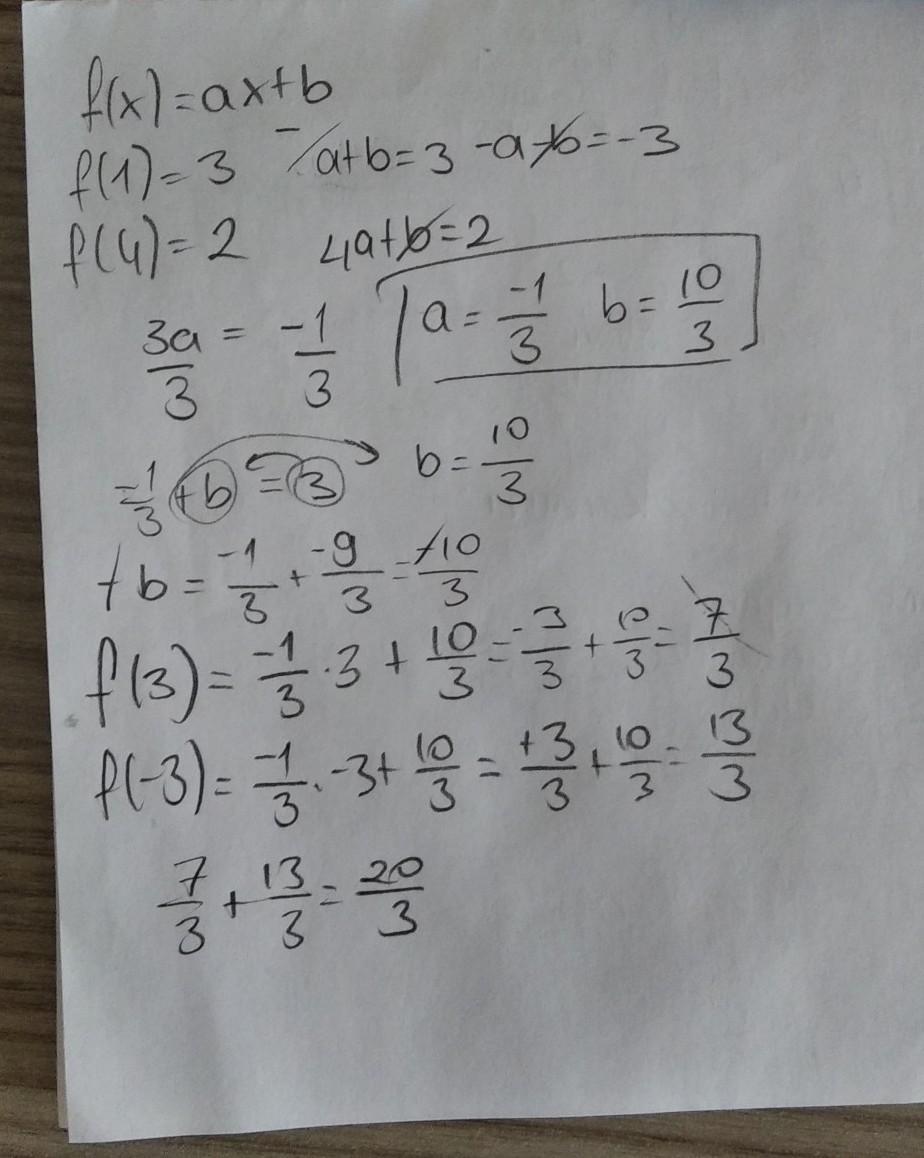 f(x)=ax+b
f(1)=3 -/a+b=3 -a-b=-3
f(4)=2 4a+b=2
3a/3 = -1/3 a=-1/3 b=10/3
-1/3+b=3 b=10/3
-b=-1/3+-9/3=-10/3
f(3)=-1/3·3+10/3=-3/3+10/3=7/3
f(-3)=-1/3·-3+10/3=+3/3+10/3=13/3
7/3+13/3=20/3